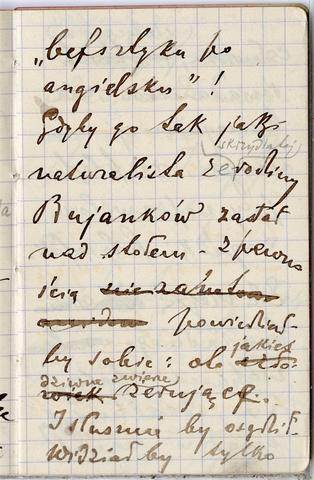 „befsztyku po
angielsku”!
Gdyby go tak jakiś
skrzydlatej
naturalista z rodziny
Bujanków zastał
nad stołem - z pewno
ścią
powiedział-
by sobie: oto jakieś
dziwne zwierzę
żerujące..
I słusznie by osądził.
Widziałby tylko